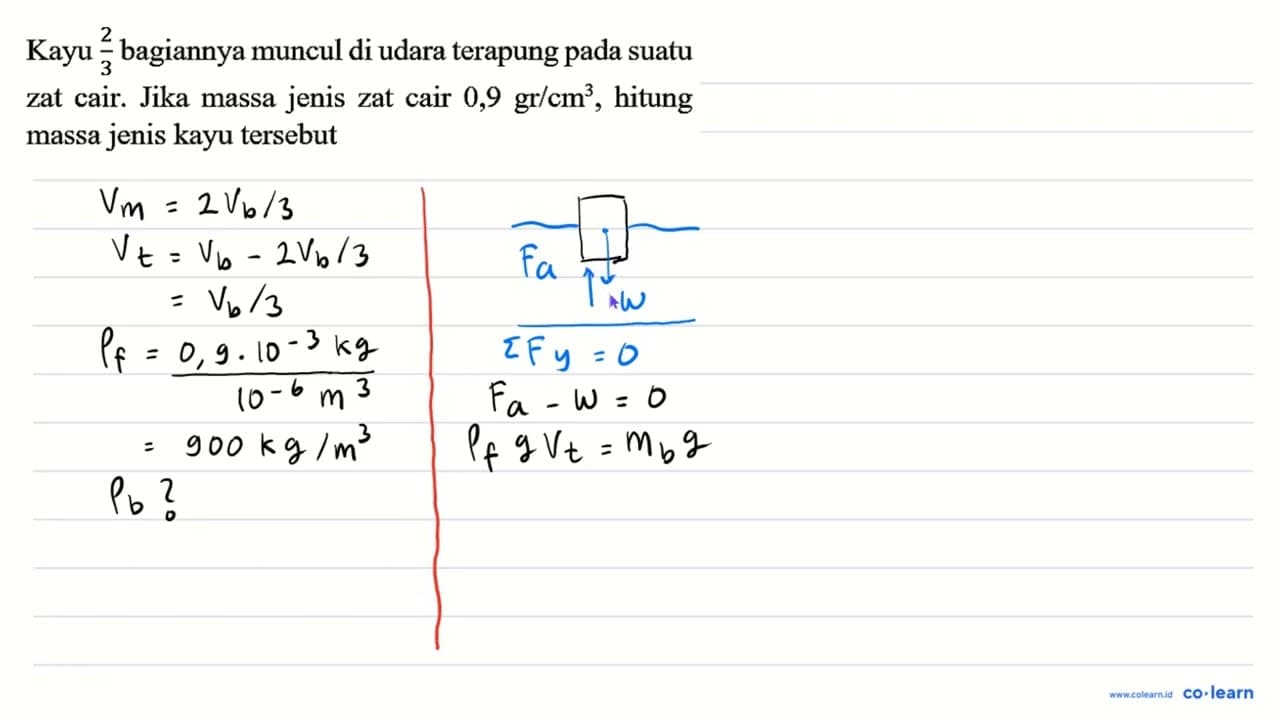 Kayu 2/3 bagiannya muncul di udara terapung pada suatu
zat cair. Jika massa jenis zat cair 0,9 gr/cm³, hitung
massa jenis kayu tersebut
Vm = 2Vb/3
Vt = Vb - 2Vb/3
= Vb/3
ρf = 0,9 . 10⁻³ kg
10⁻⁶ m³
= 900 kg/m³
ρb ?
Fa
w
ΣFy = 0
Fa - w = 0
ρf g Vt = mb g
www.colearn.id co·learn